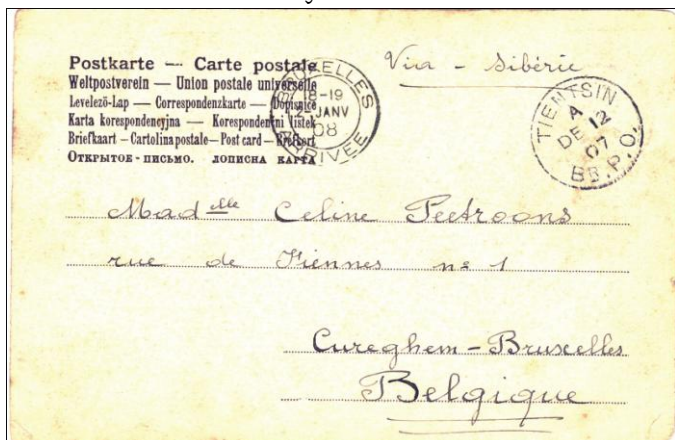 Postkarte — Carte postale
Weltpostverein — Union postale universelle
Levelező-Lap — Correspondenzkarte — Dopisnice
Karta korespondencyjna — Korespondenčni listek
Briefkaart — Cartolina postale — Post card — Brefkort
Открытое-письмо. лописна карта
BRUXELLES
18-19
2 JANV
08
ARRIVEE
Via - Sibérie
TIENTSIN
A
DE 12
07
BR.P.O.
Madelle Celine Peetroons
rue de Fiennes no 1
Cureghem - Bruxelles
Belgique